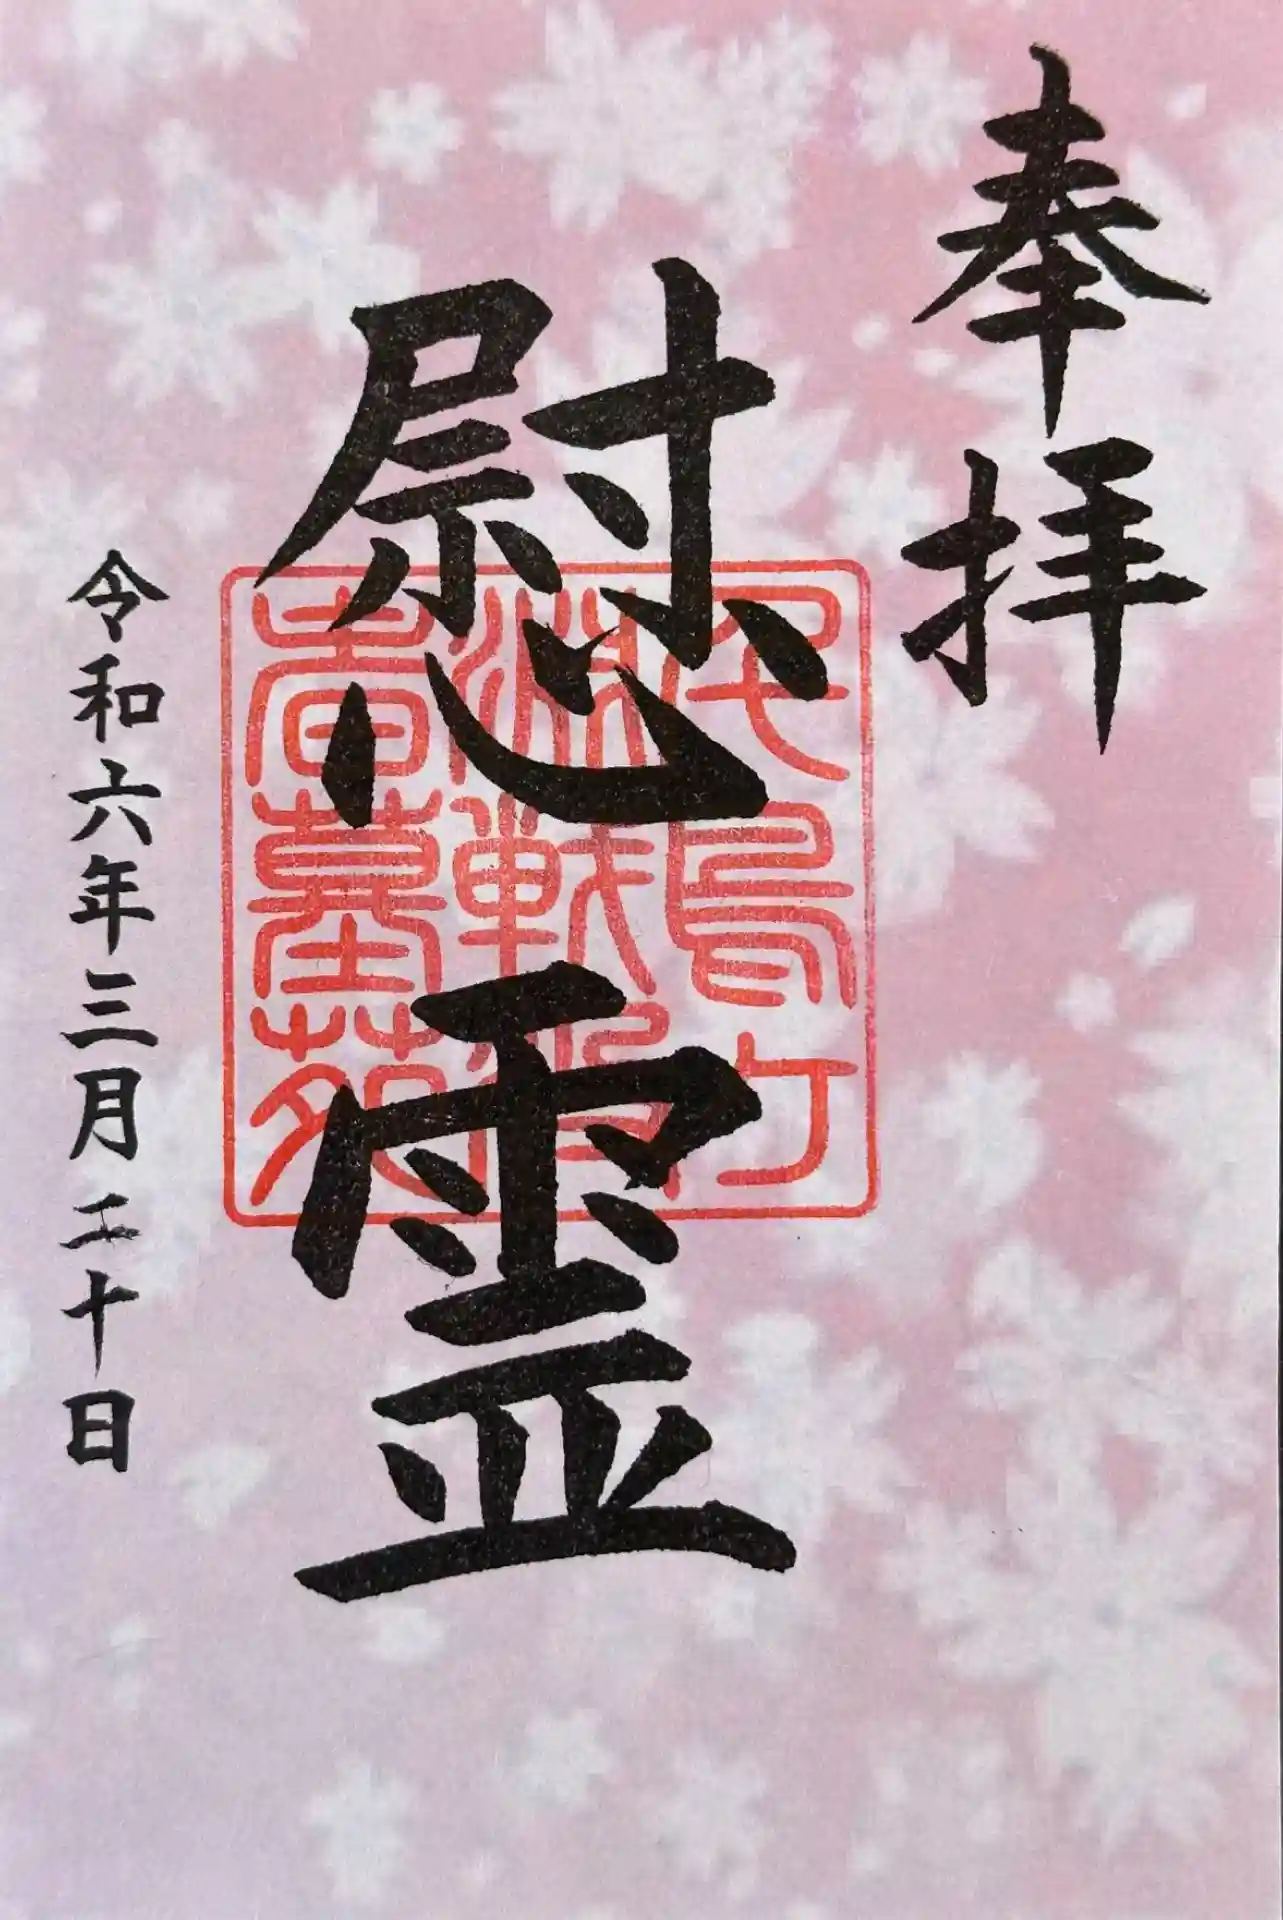 奉拝
慰霊
千鳥ケ
淵戦没
者墓苑
令和六年三月二十日